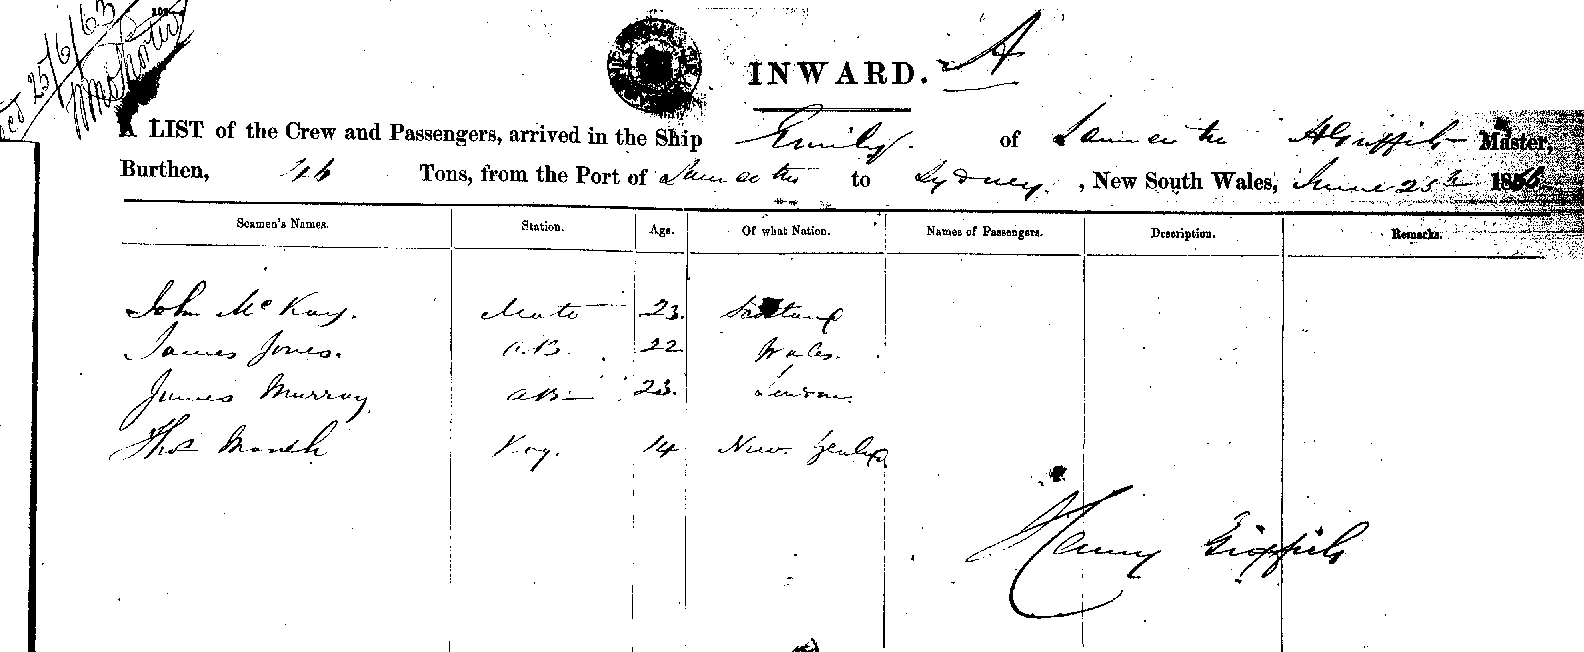 25/6/63
INWARD. A
A LIST of the Crew and Passengers, arrived in the Ship Emily of Launceston H Griffith Master,
Burthen, 46 Tons, from the Port of Launceston to Sydney, New South Wales, June 25th 186
Seamen's Names. Station. Age. Of what Nation. Names of Passengers. Description. Remarks.
John McKay. Mate 23. Scotland
James Jones. A.B. 22 Wales.
James Murray AB 23. London.
Thos Boy. 14 New
Griffith